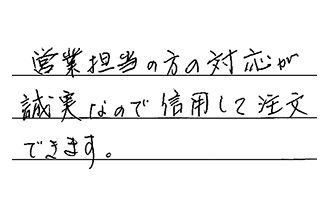 営業担当の方の対応が
誠実なので信用して注文
できます。